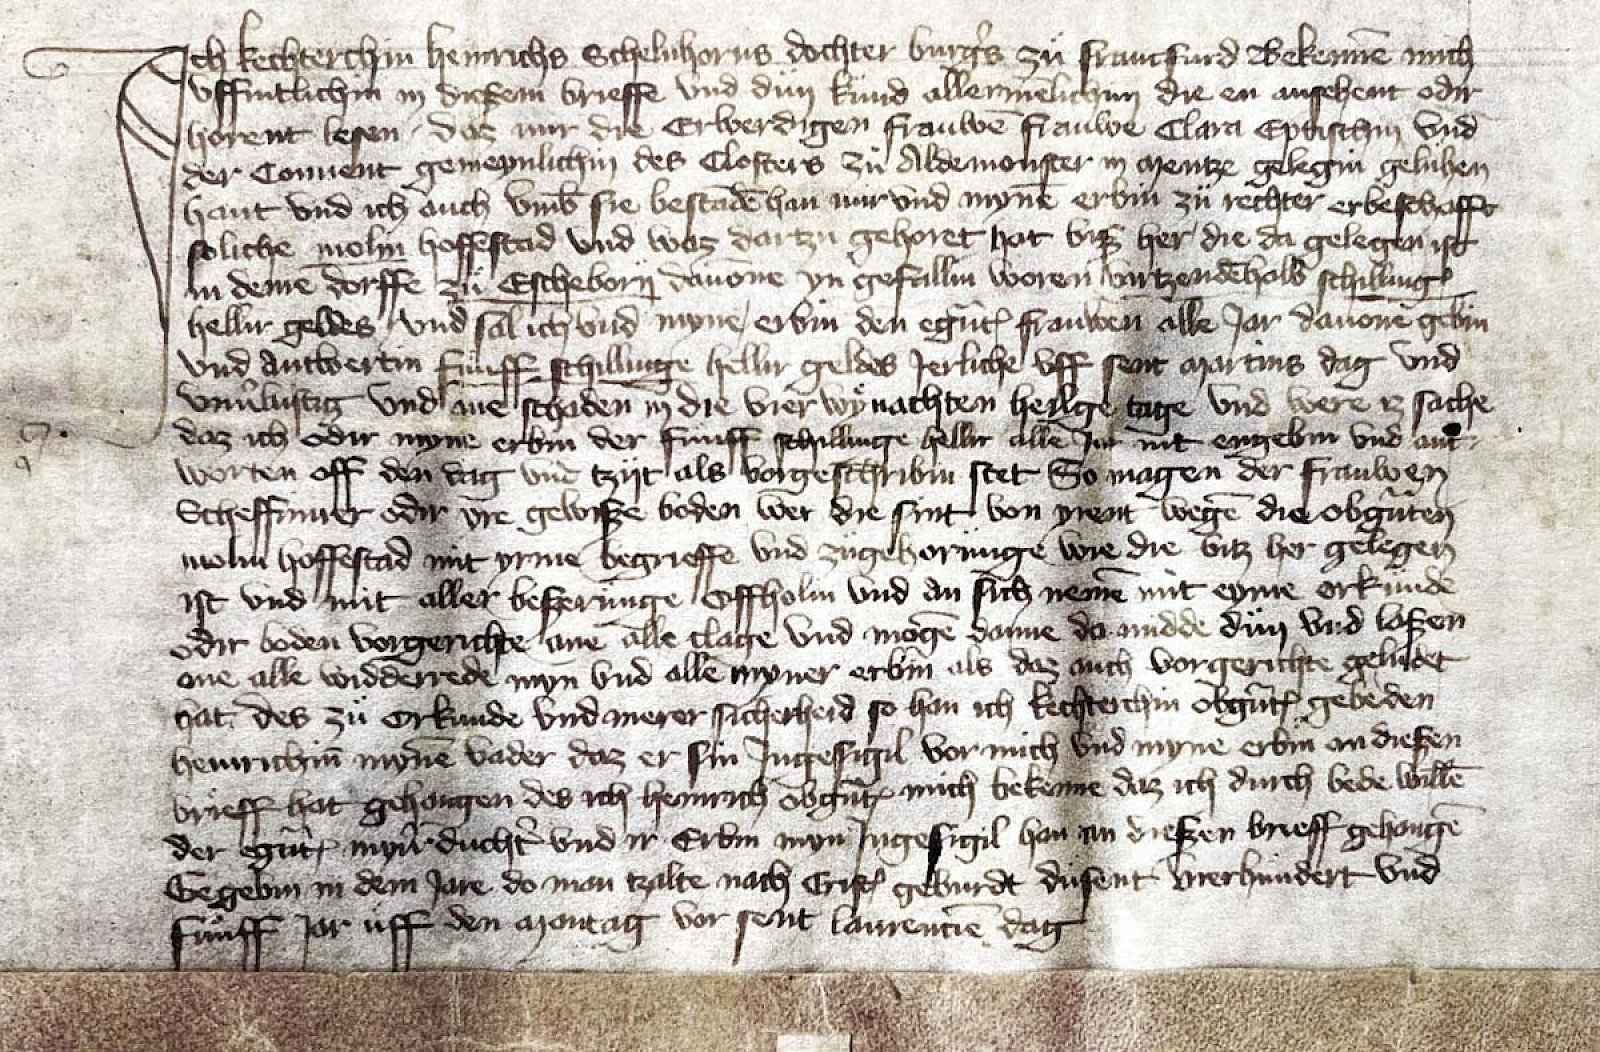 Ich kechterchin heinrichs Schelnhorns dochter burgers zü franckfurd Bekenne mich
uffintlichin in dießem brieffe und dün kund allermenlichin die en ansehent odir
horent lesen daz mir die Erwerdigen frauwē frauwe Clara Eptischin und
der Convent gemeynlichin des Closters zü Aldemonster in mentze gelegin geluhen
hant und ich auch umb sie bestadē han mir und mynē erbin zü rechter erbeschafft
soliche moln hoffestad und waz dartzu gehoret hat bitz her die da gelegen ist
in demē dorffe zü Escheborn davone yn gefallin woren virtzendehalb schilling
hellir geldes und sal ich und myne erbin den egūt frauwen alle Jar davonē gebin
und antwertin funff schillinge hellir geldes Jerliche uff sent martins dag und
unvirlustig und āne schaden in die vier wynachten heilge tage und were iz sache
daz ich odir myne erbin der funff schillinge hellir alle Jar nit engebin und ant
worten off den dag und tzyt als vorgeschribin stet So magen der frauwen
Scheffinner odir yre gewisse boden wer die sint von yrent wegē die obgūten
moln hoffestad mit yrme begrieffe und zügehorunge wie die bitz her gelegen
ist und mit aller beßerunge Offholin und an sich nemē mit eyme orkunde
odir boden vorgerichte ane alle clage und mogē danne da midde dün und laßen
ane alle widderrede myn und alle myner erbin als daz auch vorgerichte geludet
hat des zü orkunde und merer sicherheid so han ich kechterchin obgūt gebeden
heinrichin mynē vader daz er sin Ingesigil vor mich und myne erbin an dießen
brieff hat gehangen des ich heinrich obgūt mich bekenne daz ich durch bede willē
der egūt mynr duchtr und ir Erbin myn Ingesigil han an dießen brieff gehangē
Gegebin in dem Jare do man tzalte nach Crist geburdt dusent vierhundert und
funff Jar uff den montag vor sent laurencien dag